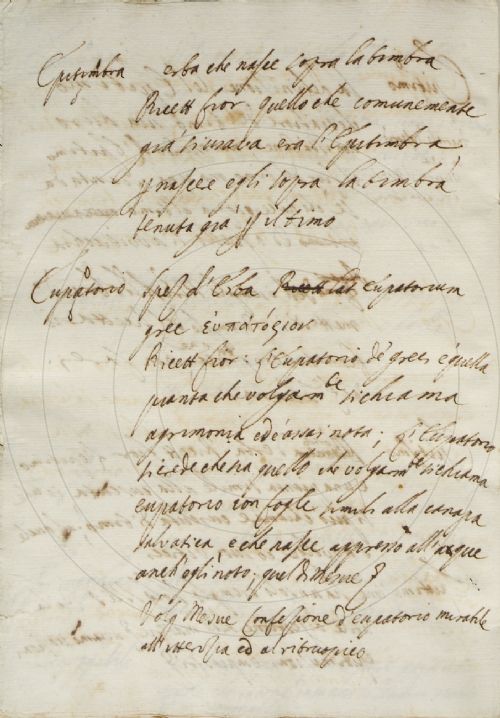 Epitimbra erba che nasce sopra la timbra
Ricett fior quello che comunemente
già si usava era l'Epitimbra
nasce egli sopra la timbra
tenuta già il timo
Eupatorio spez d'Erba lat Eupatorium
grec ἐυπατόριον
Ricett fior: L'Eupatorio de greci è quella
pianta che volgarmte si chiama
agrimonia ed è assai nota; L'Eupatorio
si crede che sia quello che volgarmte si chiama
eupatorio con foglie simili alla canapa
salvatica, e che nasce appresso all'acque
anch'egli noto; quel di Mesue
Volg Mesue Confezione d'eupatorio mirabile
all'itterizia ed al ritruopico